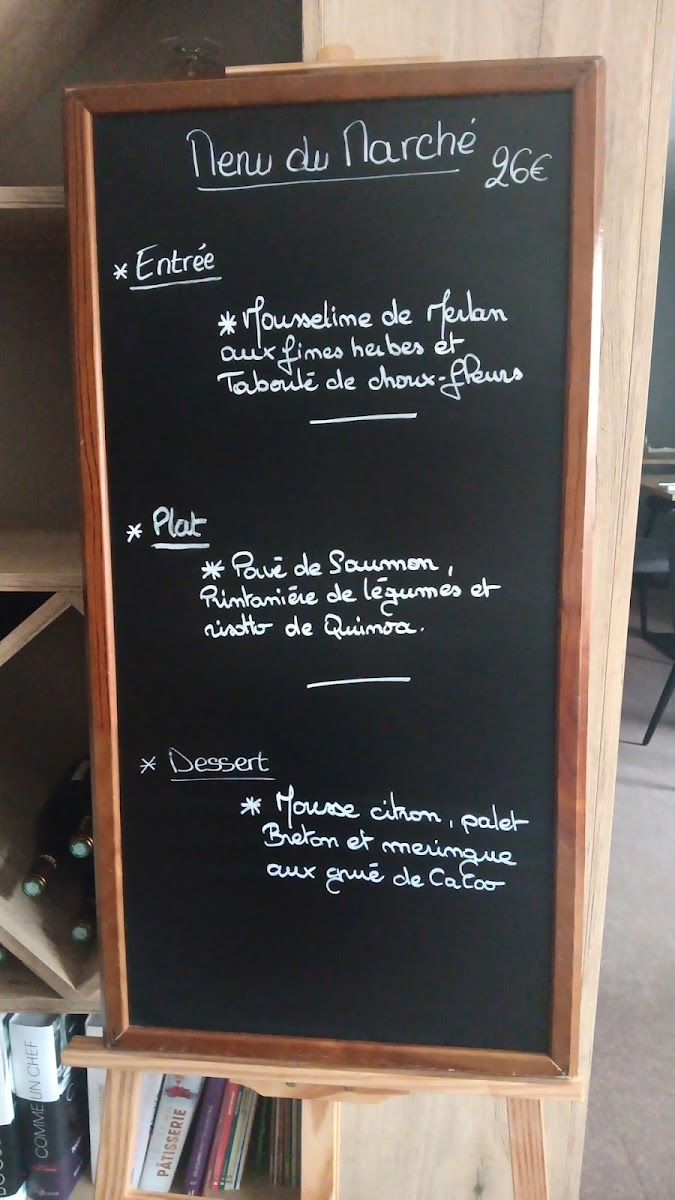 Menu du Marché 26€
* Entrée
* Mousseline de Merlan
aux fines herbes et
Taboulé de choux-fleurs
* Plat
* Pavé de Saumon,
Printanière de légumes et
risotto de Quinoa.
* Dessert
* Mousse citron, palet
Breton et meringue
aux grué de Cacao
COMME UN CHEF
PÂTISSERIE